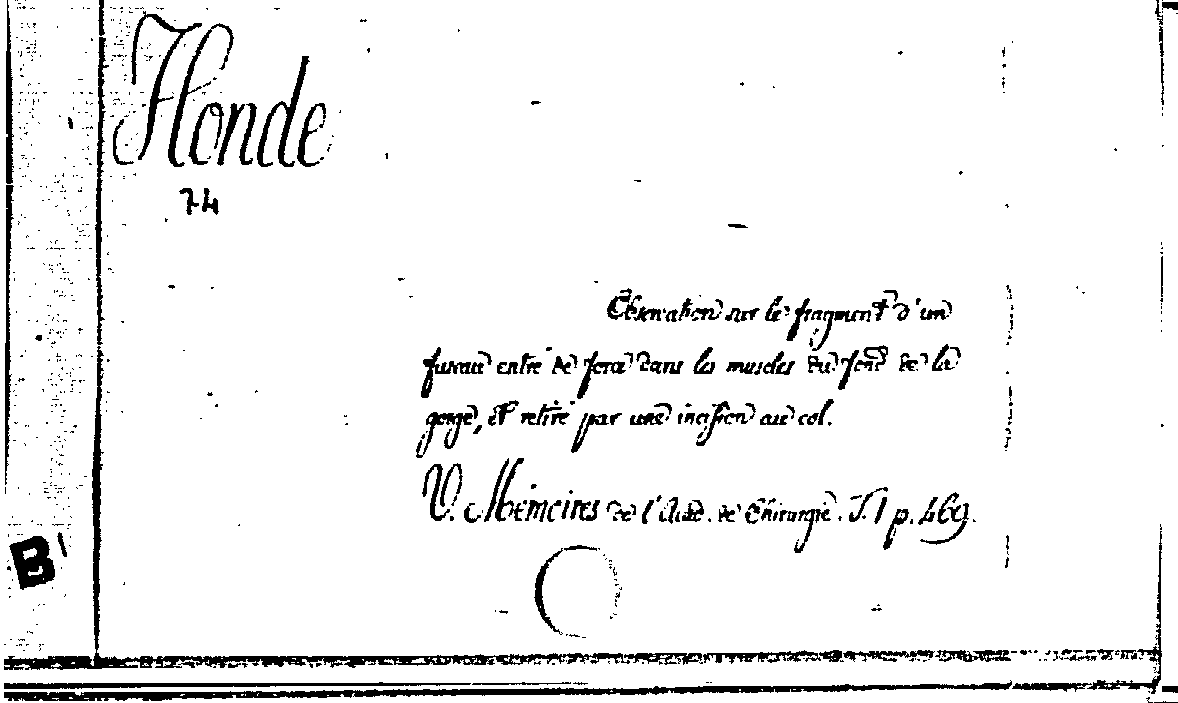 Honde
74
Observation sur le fragment d'un
fuseau entré de force dans les muscles du fond de la
gorge, et retiré par une incision au col.
V. Mémoires de l'Acad. de Chirurgie. T. 1 p. 469.
B1